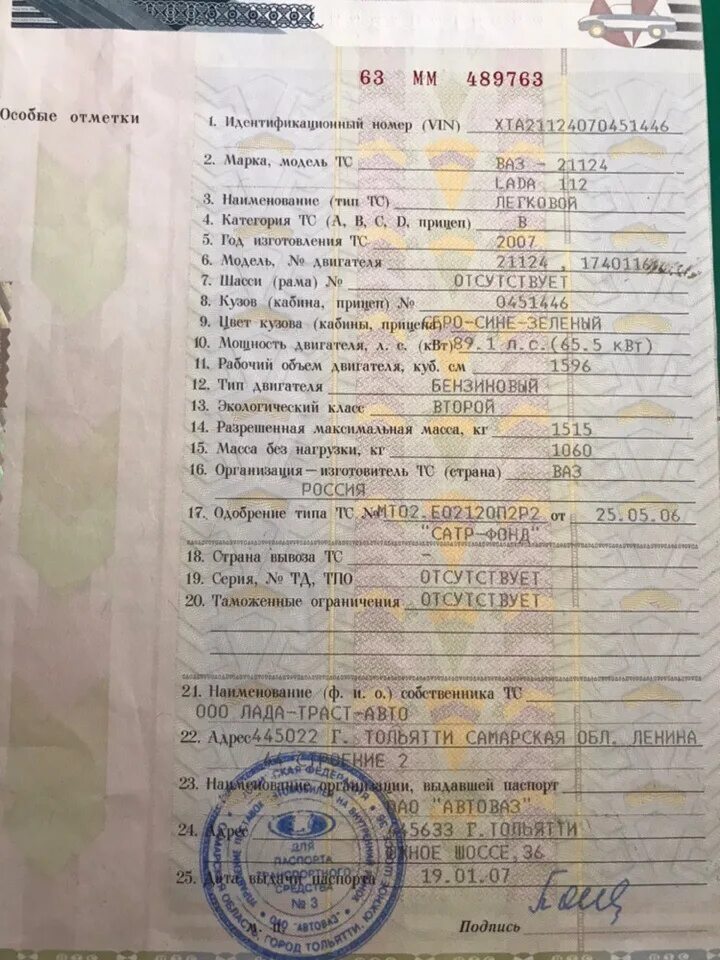 63 ММ 489763
Особые отметки
1. Идентификационный номер (VIN) XTA21124070451446
2. Марка, модель ТС ВАЗ - 21124
LADA 112
3. Наименование (тип ТС) ЛЕГКОВОЙ
4. Категория ТС (А, В, С, D, прицеп) В
5. Год изготовления ТС 2007
6. Модель, № двигателя 21124 ,
7. Шасси (рама) № ОТСУТСТВУЕТ
8. Кузов (кабина, прицеп) № 0451446
9. Цвет кузова (кабины, прицепа) СЕРО-СИНЕ-ЗЕЛЕНЫЙ
10. Мощность двигателя, л. с. (кВт) 89.1 Л.С.(65.5 кВт)
11. Рабочий объем двигателя, куб. см 1596
12. Тип двигателя БЕНЗИНОВЫЙ
13. Экологический класс ВТОРОЙ
14. Разрешенная максимальная масса, кг 1515
15. Масса без нагрузки, кг 1060
16. Организация—изготовитель ТС (страна) ВАЗ
РОССИЯ
17. Одобрение типа ТС № МТ02.Е02120П2Р2 от 25.05.06
"САТР-ФОНД"
18. Страна вывоза ТС -
19. Серия, № ТД, ТПО ОТСУТСТВУЕТ
20. Таможенные ограничения ОТСУТСТВУЕТ
21. Наименование (ф. и. о.) собственника ТС
ООО ЛАДА-ТРАСТ-АВТО
22. Адрес 445022 Г. ТОЛЬЯТТИ САМАРСКАЯ ОБЛ. ЛЕНИНА
44 СТРОЕНИЕ 2
23. Наименование организации, выдавшей паспорт
ОАО "АВТОВАЗ"
24. Адрес 445633 Г.ТОЛЬЯТТИ
ЮЖНОЕ ШОССЕ,36
25. Дата выдачи паспорта 19.01.07
М. П. Подпись
ДЛЯ
ПАСПОРТА
ТРАНСПОРТНОГО
СРЕДСТВА
№ 3
ОАО "АВТОВАЗ"